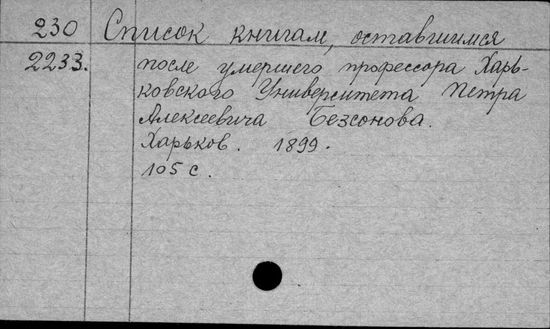 230 Список книгам, оставшимся
2233. после умершего профессора Харь-
ковского Университета Петра
Алексеевича Безсонова.
Харьков. 1899.
105 с.